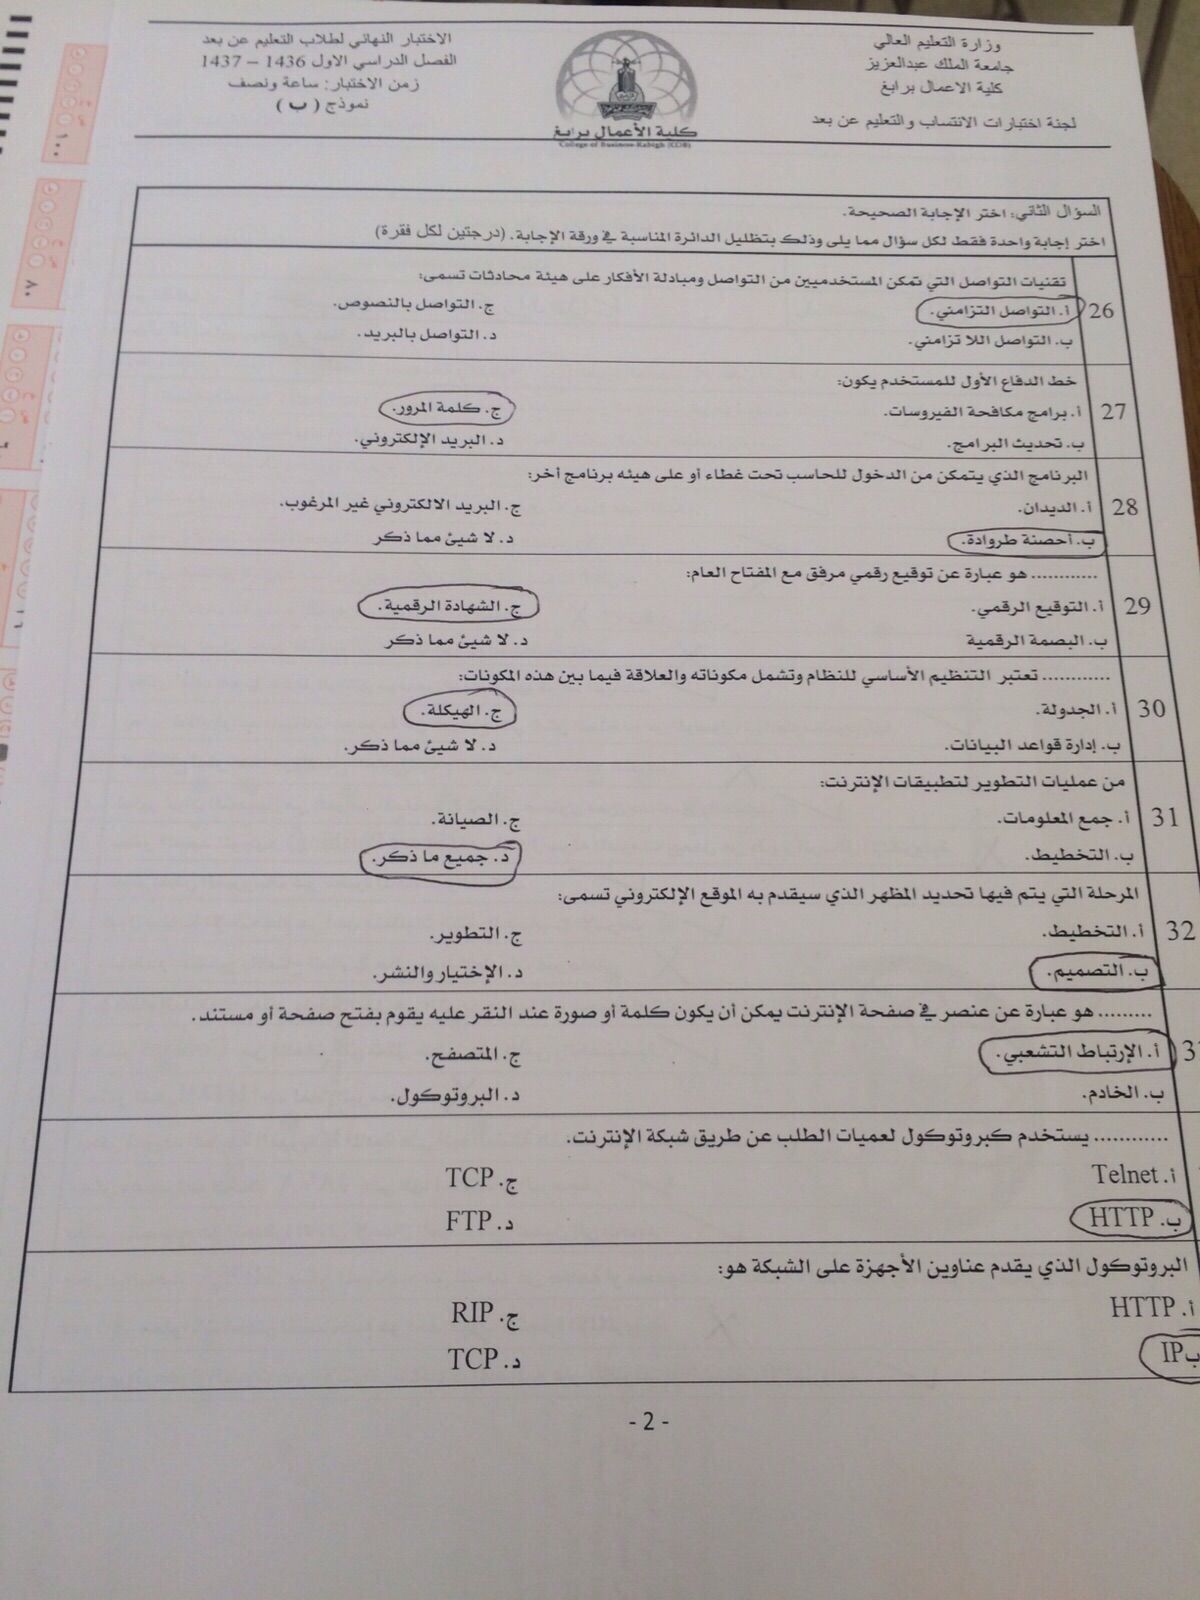 وزارة التعليم العالي
جامعة الملك عبدالعزيز
كلية الاعمال برابغ
لجنة اختبارات الانتساب والتعليم عن بعد
كلية الأعمال برابغ
College of Business-Rabigh (COB)
الاختبار النهائي لطلاب التعليم عن بعد
الفصل الدراسي الاول 1436 – 1437
زمن الاختبار: ساعة ونصف
نموذج ( ب )
السؤال الثاني: اختر الإجابة الصحيحة.
اختر إجابة واحدة فقط لكل سؤال مما يلى وذلك بتظليل الدائرة المناسبة في ورقة الإجابة. (درجتين لكل فقرة)
26 تقنيات التواصل التي تمكن المستخدميين من التواصل ومبادلة الأفكار على هيئة محادثات تسمى:
أ. التواصل التزامني. ج. التواصل بالنصوص.
ب. التواصل اللا تزامني. د. التواصل بالبريد.
27 خط الدفاع الأول للمستخدم يكون:
أ. برامج مكافحة الفيروسات. ج. كلمة المرور.
ب. تحديث البرامج. د. البريد الإلكتروني.
28 البرنامج الذي يتمكن من الدخول للحاسب تحت غطاء أو على هيئه برنامج أخر:
أ. الديدان. ج. البريد الالكتروني غير المرغوب.
ب. أحصنة طروادة. د. لا شيئ مما ذكر
29 ............ هو عبارة عن توقيع رقمي مرفق مع المفتاح العام:
أ. التوقيع الرقمي. ج. الشهادة الرقمية.
ب. البصمة الرقمية د. لا شيئ مما ذكر
30 ............ تعتبر التنظيم الأساسي للنظام وتشمل مكوناته والعلاقة فيما بين هذه المكونات:
أ. الجدولة. ج. الهيكلة.
ب. إدارة قواعد البيانات. د. لا شيئ مما ذكر.
31 من عمليات التطوير لتطبيقات الإنترنت:
أ. جمع المعلومات. ج. الصيانة.
ب. التخطيط. د. جميع ما ذكر.
32 المرحلة التي يتم فيها تحديد المظهر الذي سيقدم به الموقع الإلكتروني تسمى:
أ. التخطيط. ج. التطوير.
ب. التصميم. د. الإختيار والنشر.
......... هو عبارة عن عنصر في صفحة الإنترنت يمكن أن يكون كلمة أو صورة عند النقر عليه يقوم بفتح صفحة أو مستند.
أ. الإرتباط التشعبي. ج. المتصفح.
ب. الخادم. د. البروتوكول.
............ يستخدم كبروتوكول لعميات الطلب عن طريق شبكة الإنترنت.
أ. Telnet ج. TCP
ب. HTTP د. FTP
البروتوكول الذي يقدم عناوين الأجهزة على الشبكة هو:
أ. HTTP ج. RIP
ب IP د. TCP
- 2 -